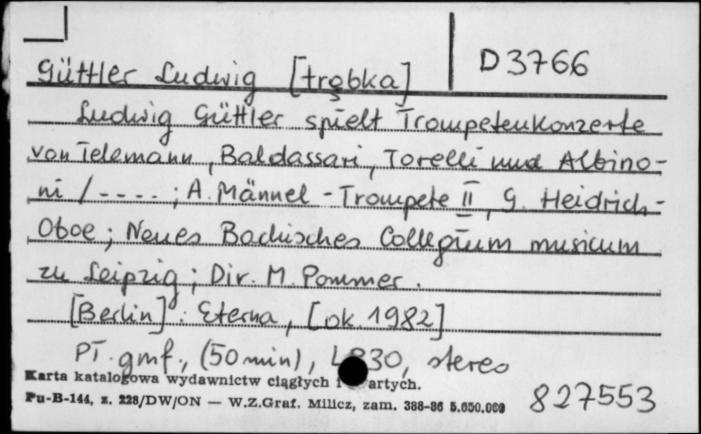 D 3766
Güttler Ludwig [trąbka]
Ludwig Güttler spielt Trompetenkonzerte
von Telemann, Baldassari, Torelli und Albino-
ni / - - - - ; A. Männel - Trompete II, G. Heidrich -
Oboe ; Neues Bachisches Collegium musicum
zu Leipzig ; Dir. M. Pommer.
[Berlin] : Eterna, [ok. 1982]
PŁ. gmf., (50 min), LP30, stereo
Karta katalogowa wydawnictw ciągłych i artych.
Pu-B-144, z. 228/DW/ON — W.Z.Graf. Milicz, zam. 388-86 5.650.000
827553